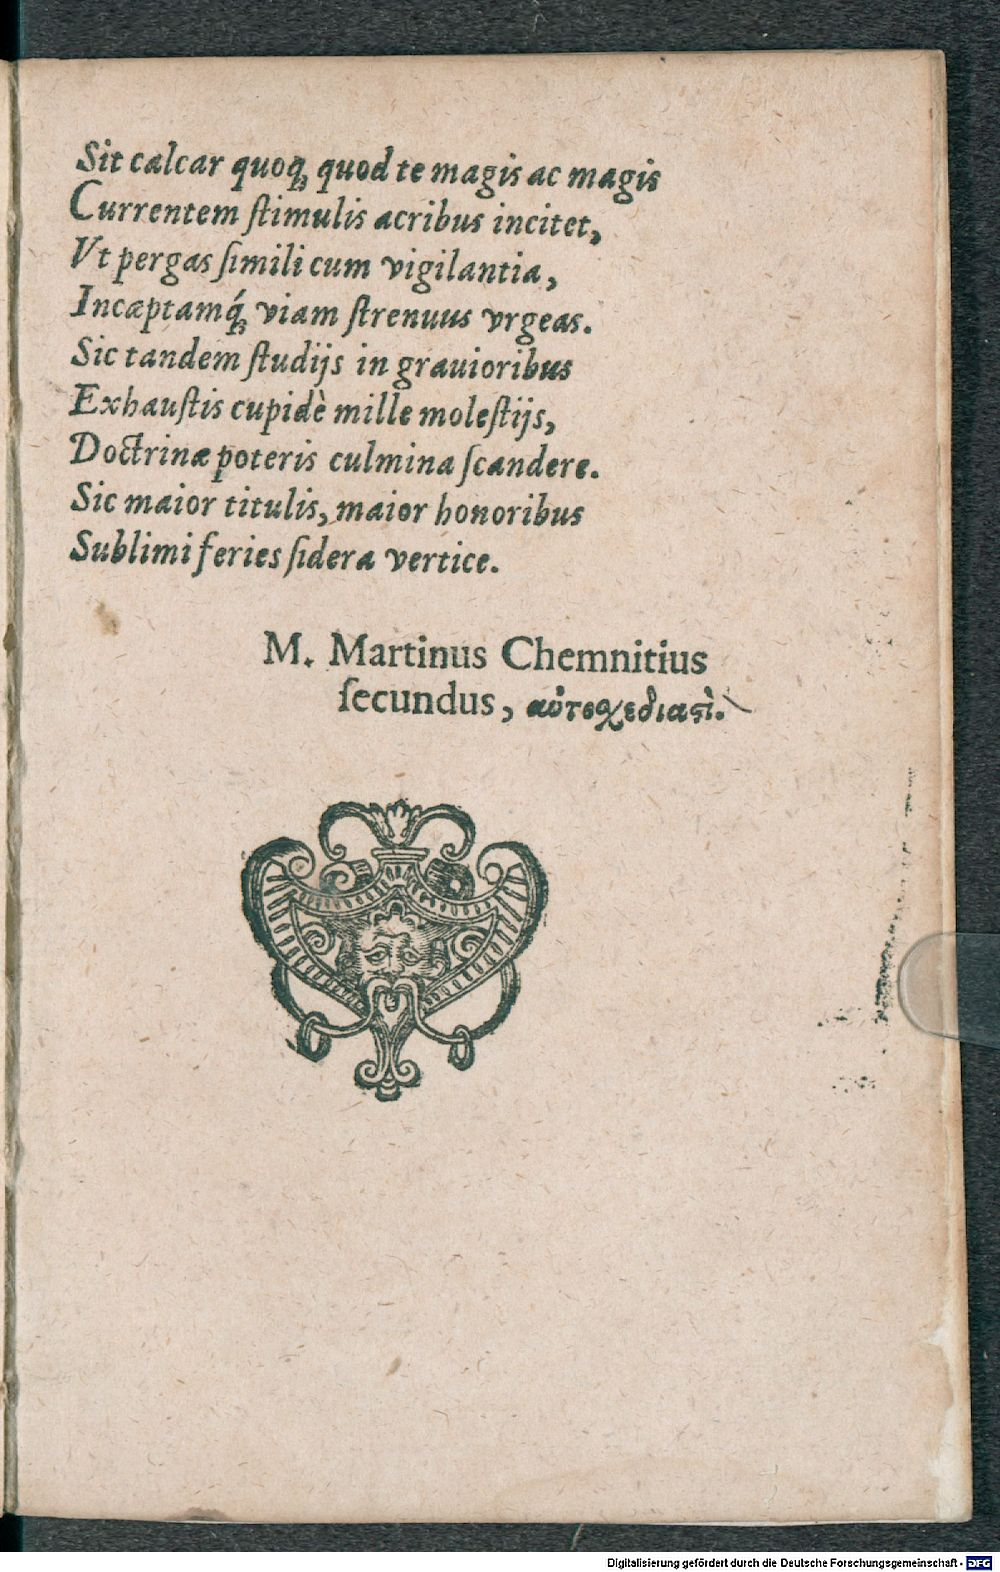 Sit calcar quoq́; quod te magis ac magis
Currentem ſtimulis acribus incitet,
Vt pergas ſimili cum vigilantia,
Incæptamq́; viam ſtrenuus vrgeas.
Sic tandem ſtudijs in grauioribus
Exhauſtis cupidè mille moleſtijs,
Doctrinæ poteris culmina ſcandere.
Sic maior titulis, maior honoribus
Sublimi feries ſidera vertice.
M. Martinus Chemnitius
ſecundus, αὐτοσχεδιαςὶ.
Digitalisierung gefördert durch die Deutsche Forschungsgemeinschaft - DFG